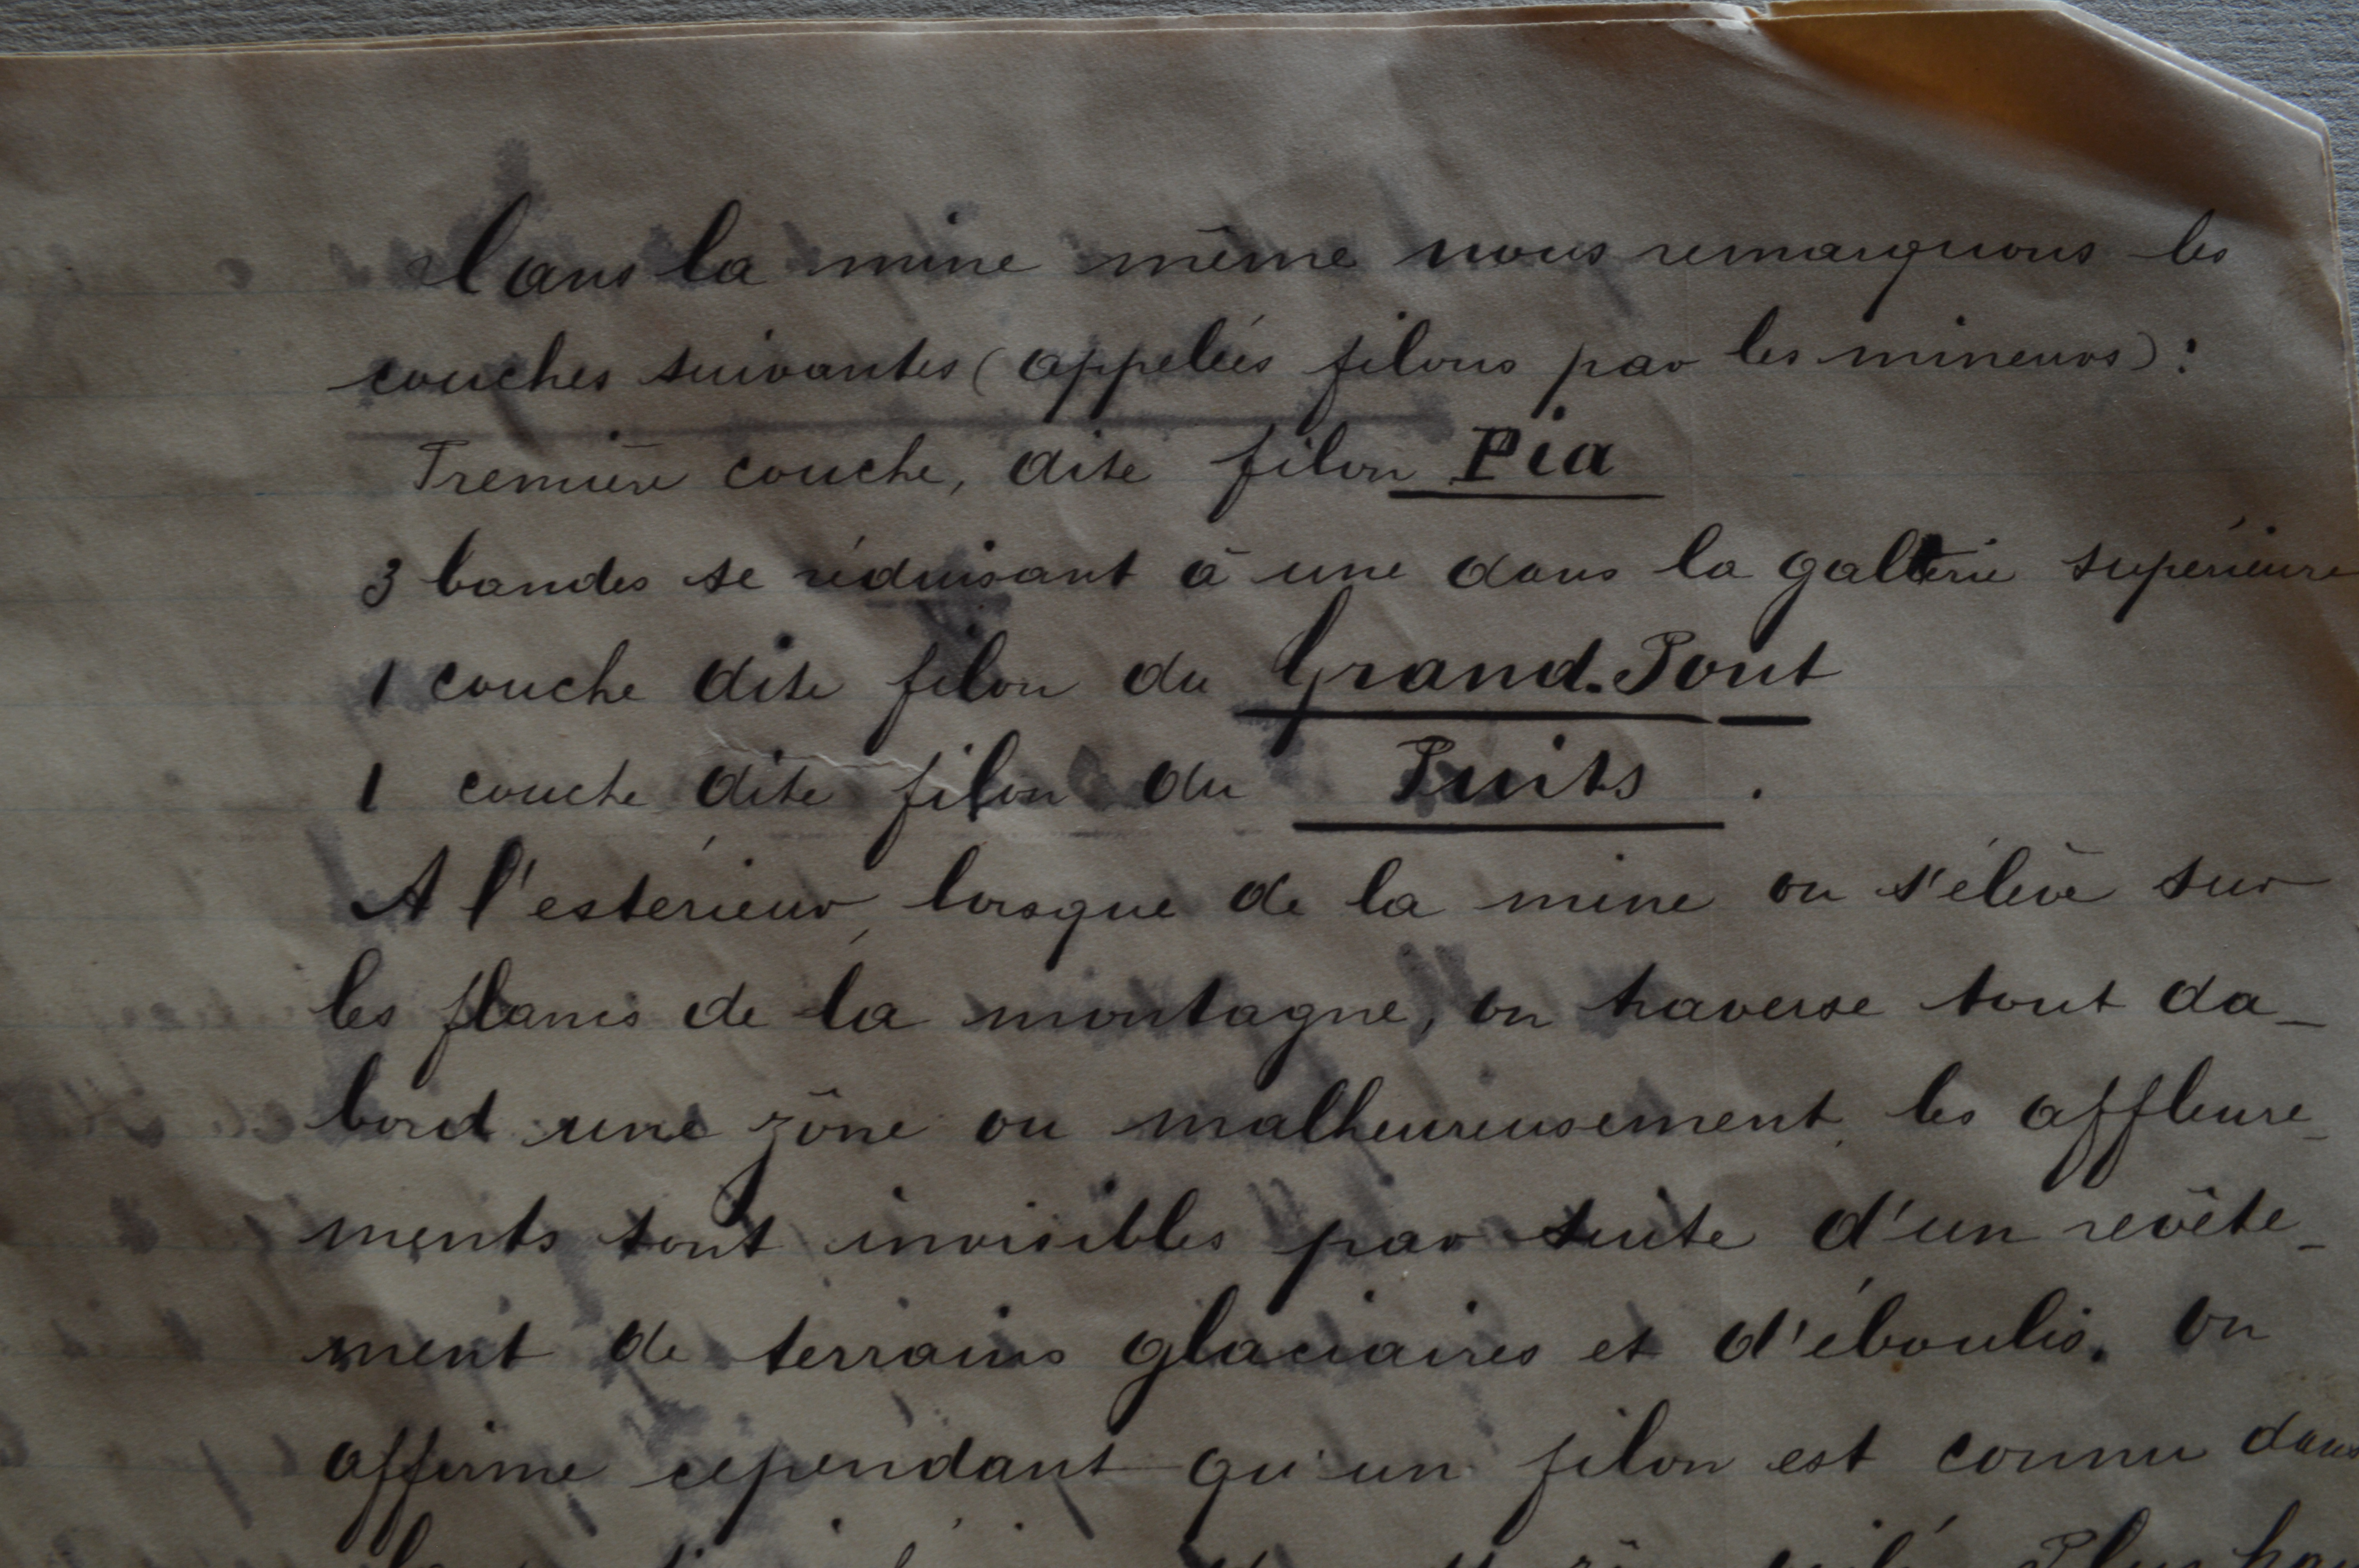 Dans la mine même nous remarquons les
couches suivantes (appelées filons par les mineurs):
Première couche, dite filon Pia
3 bandes se réduisant à une dans la galerie supérieure
1 couche dite filon du Grand-Pont
1 couche dite filon du Puits .
A l'estérieur, lorsque de la mine on s'élève sur
les flancs de la montagne, on traverse tout da-
bord une zône ou malheureusement les affleure-
ments sont invisibles par suite d'un revête-
ment de terrains glaciaires et d'éboulis. On
affirme cependant qu'un filon est connu dans